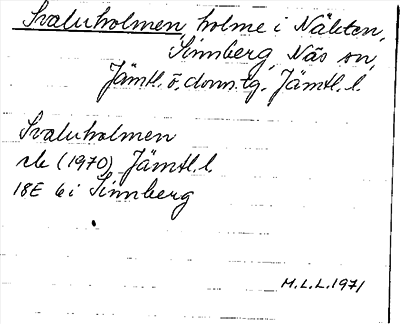 Svaluholmen holme i Näkten,
Sinnberg, Näs sn,
Jämtl. ö. doms.tg. Jämtl. l.
Svaluholmen
rk (1970) Jämtl. l.
18E 6i Sinnberg
M.L.L. 1971